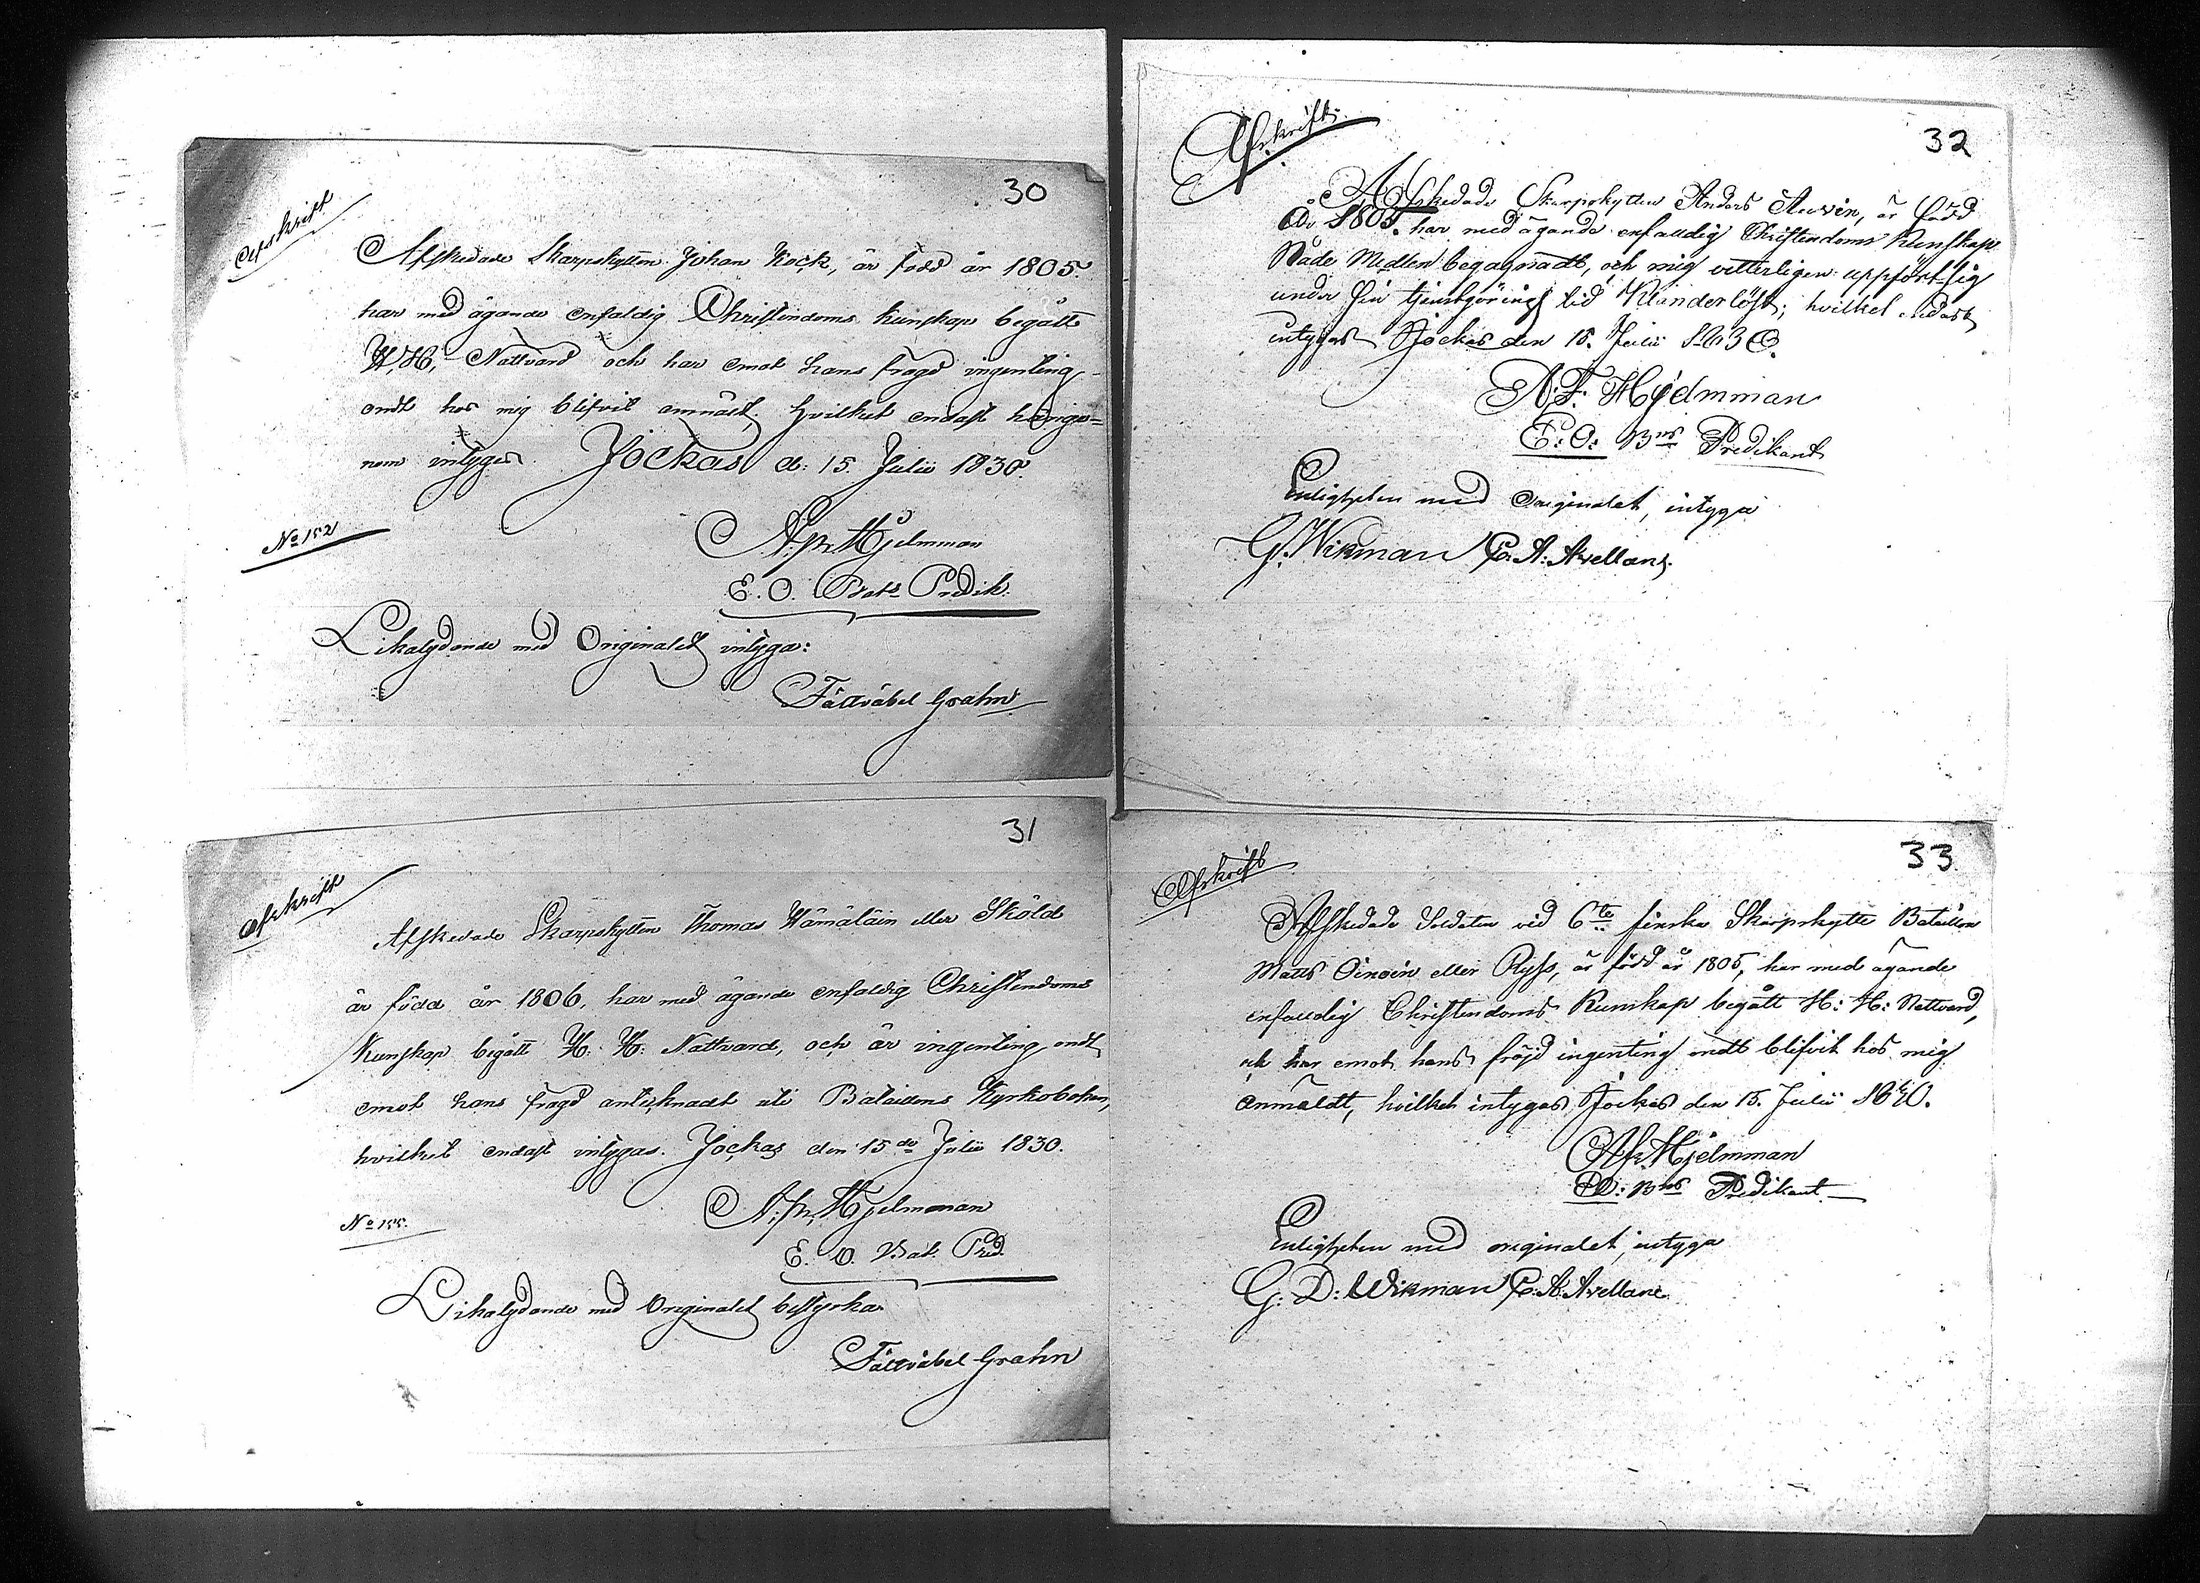 30
Afskrift
Afskedade Skarpskytten Johan Kock, är född år 1805
har med ägande enfaldig Christendoms kunskap begått
H. H. Nattvard och har emot hans frägd ingenting
ondt hos mig blifvit anmält, hvilket endast härige=
nom intygas Jockas d: 15 Julii 1830.
No 152
A. fr. Hjelmman
E. O. Bats Predik.
Likalydande med Originalet intyga:
Fältväbel Grahn
31
Afskrift
Afskedade Skarpskytten Thomas Hämäläin eller Sköld
är född år 1806, har med ägande enfaldig Christendoms
Kunskap begått H. H. Nattvard, och är ingenting ondt
emot hans frägd antecknadt uti Batailons Kyrkoboken,
hvilket endast intygas. Jockas den 15de Julii 1830.
No 155.
A. fr. Hjelmman
E. O. Bat. Pred.
Likalydande med Originalet bestyrka
Fältväbel Grahn
32
Afskrift.
Afskedade Skarpskytten Anders Auvin, är född
år 1805. har med ägande enfalldig Christendoms Kunskap
Nåde Medlen begagnadt, och mig vitterligen uppfört sig
under sin tjenstgörings tid Klanderlöst; hvilket endast
intygas Jockas den 15. Julii 1830.
A. F. Hjelmman
E: O: Bns Predikant
Enligheten med Originalet, intyga
G. Wikman C. A. Avellan
33
Afskrift
Afskedade Soldaten vid 6te finska Skarpskytte Batallion
Matts Oinoin eller Ryss, är född år 1805, har med ägande
enfalldig Christendoms Kunskap begått H: H: Nattvard,
och har emot hans fröjd ingenting ondt blifvit hos mig
anmäldt, hvilket intygas, Jockas den 15. Julii 1830.
A fr. Hjelmman
EO: Bns Predikant
Enligheten med originalet, intyga
G: D: Wikman C. A. Avellan